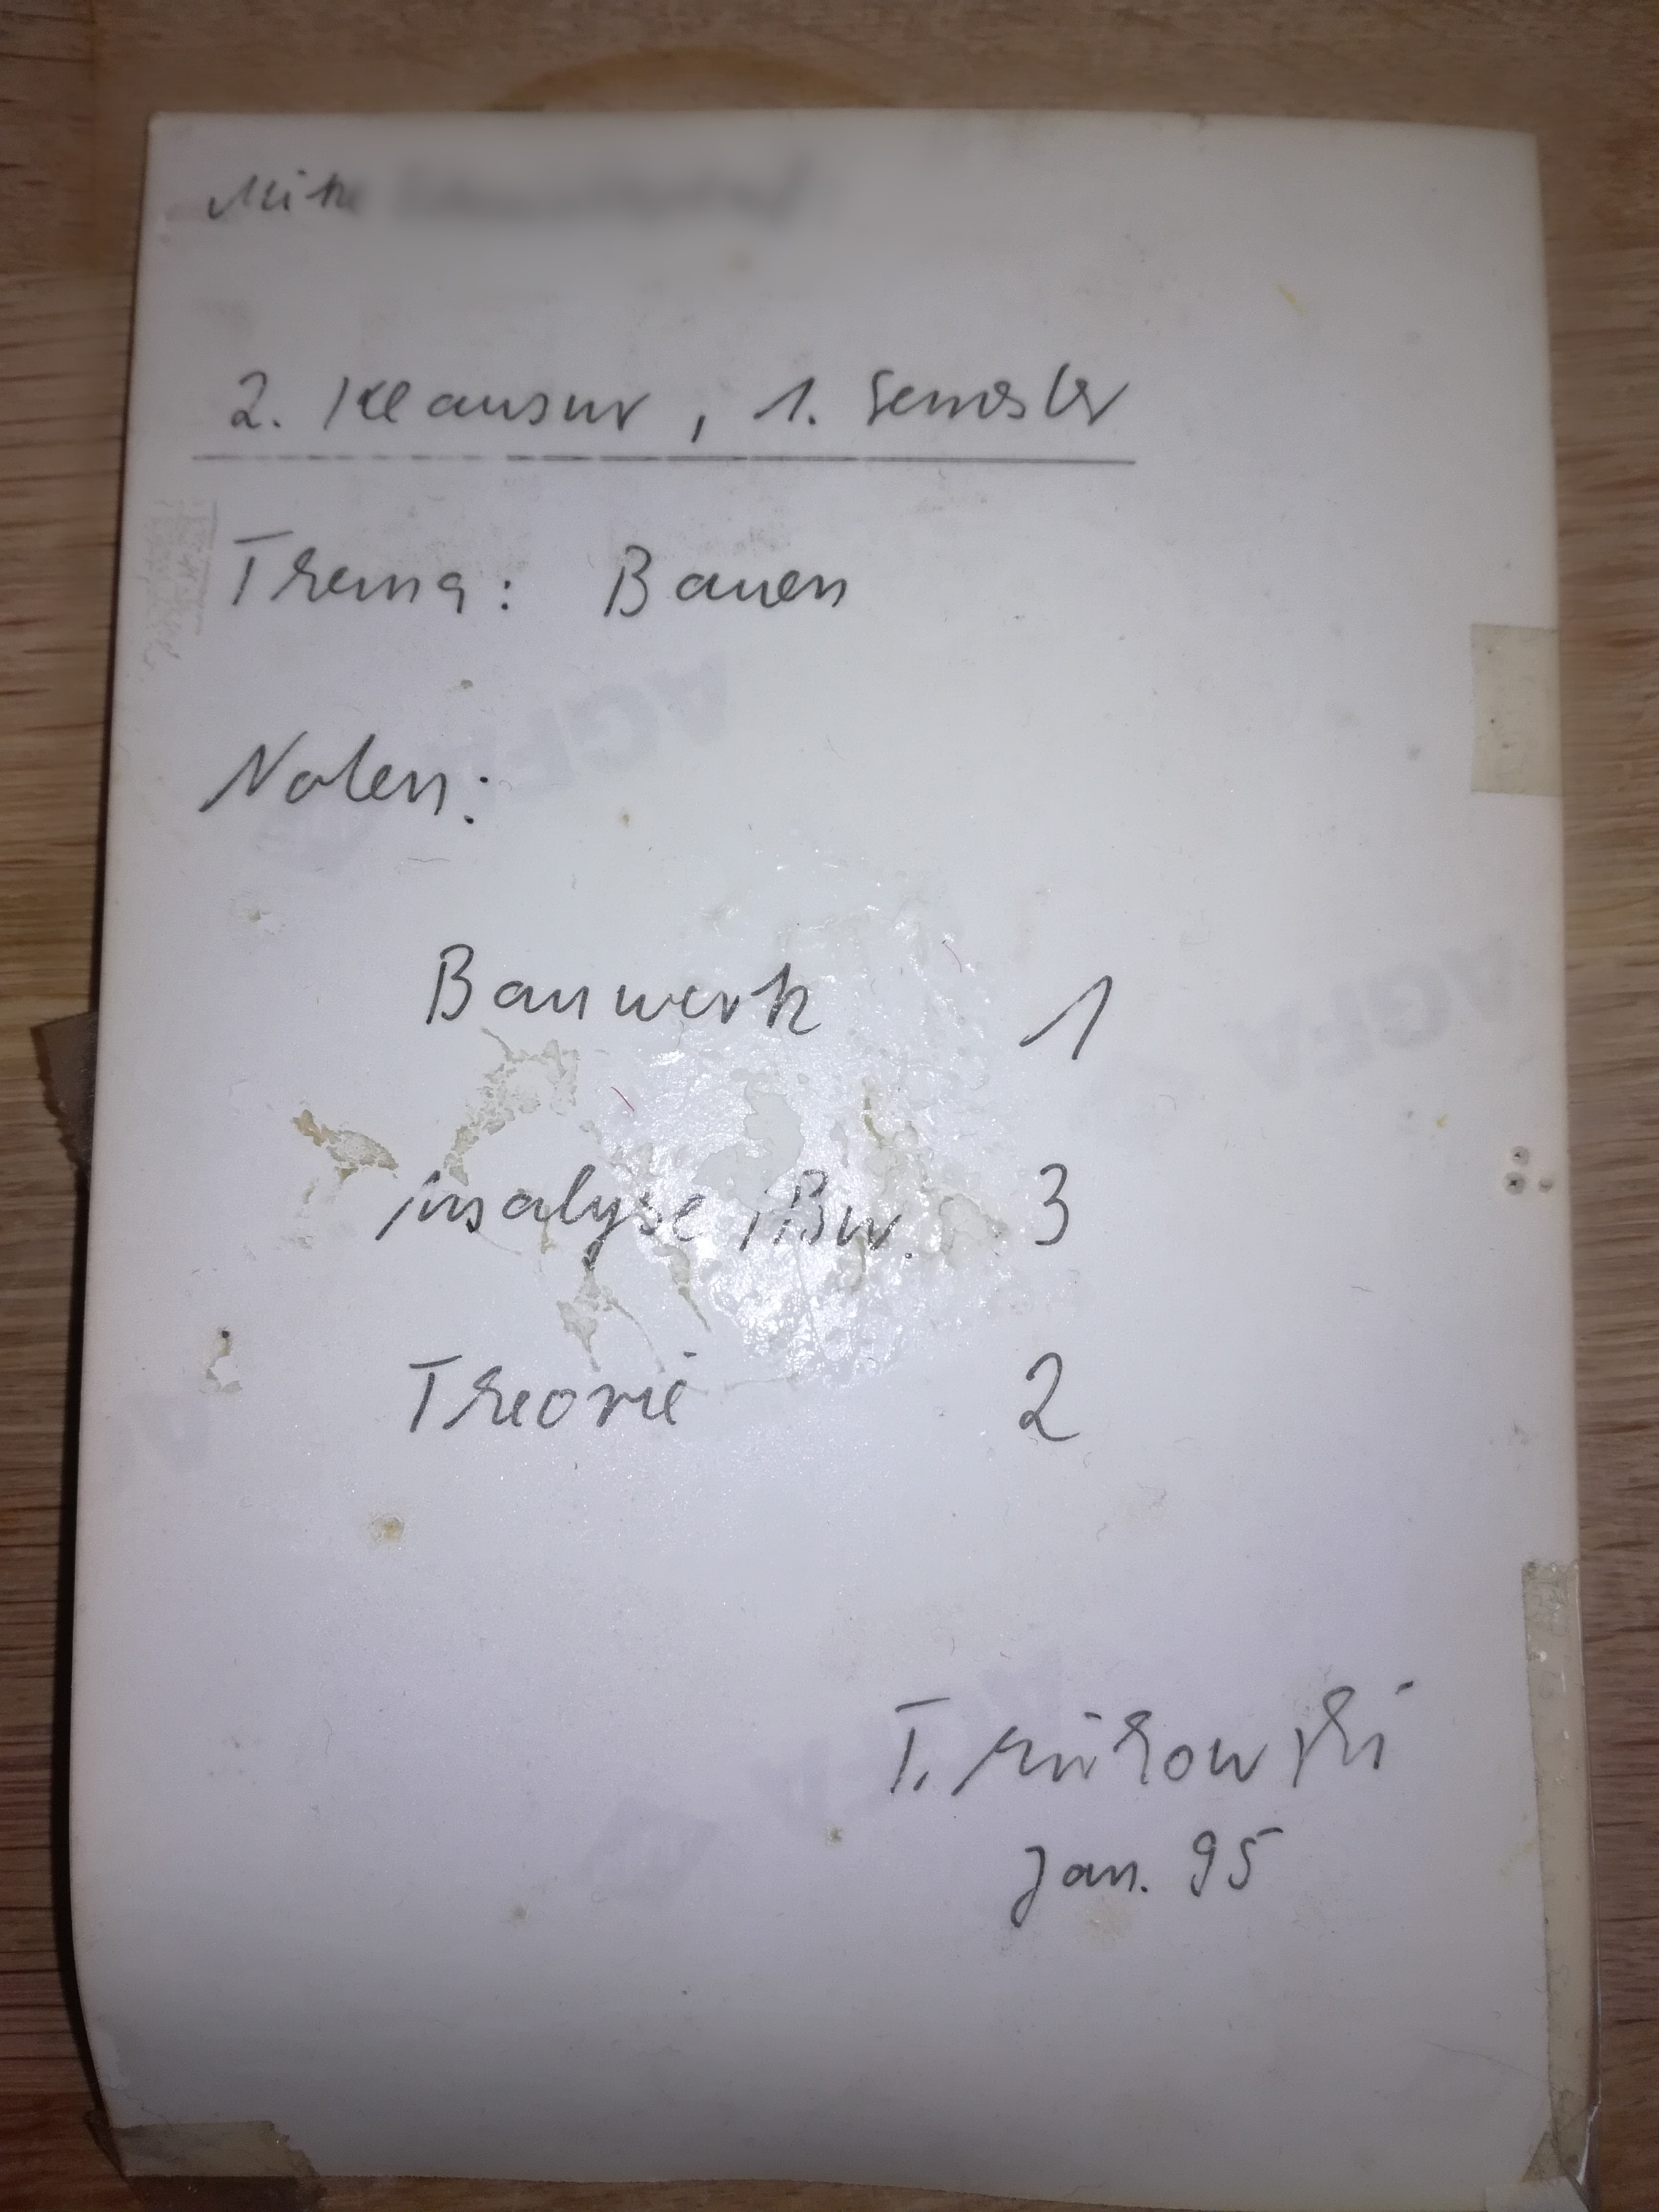 Mike
2. Klausur, 1. Semester
Thema: Bauen
Noten:
Bauwerk 1
Analyse, Bw. 3
Theorie 2
T.
Jan. 95